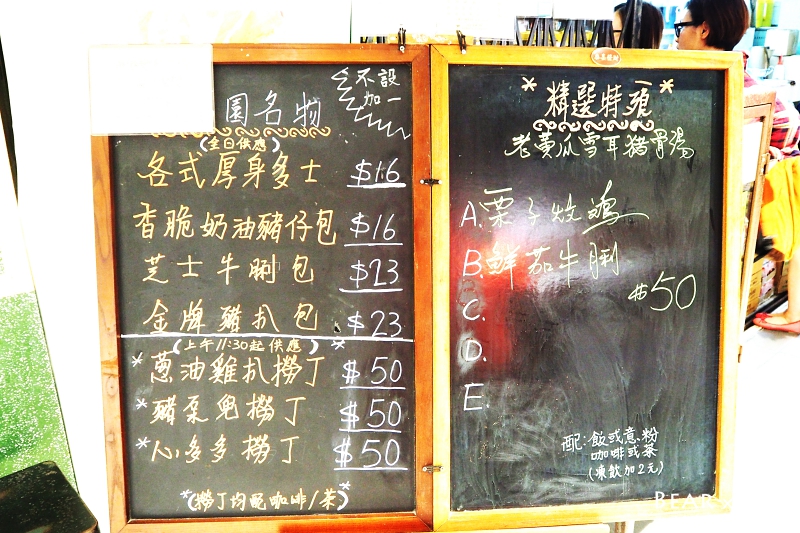 不設
加一
園名物
(全日供應)
各式厚身多士 $16
香脆奶油豬仔包 $16
芝士牛脷包 $23
金牌豬扒包 $23
(上午11:30起供應)
*蔥油雞扒撈丁 $50
*豬柔兔撈丁 $50
*心多多撈丁 $50
*(撈丁均配咖啡/茶)
*精選特頭*
老黃瓜雪耳豬骨湯
A.栗子炆鳮
B.鮮茄牛脷
$50
C.
D.
E.
配:飯或意粉
咖啡或茶
(凍飲加2元)
BEAR